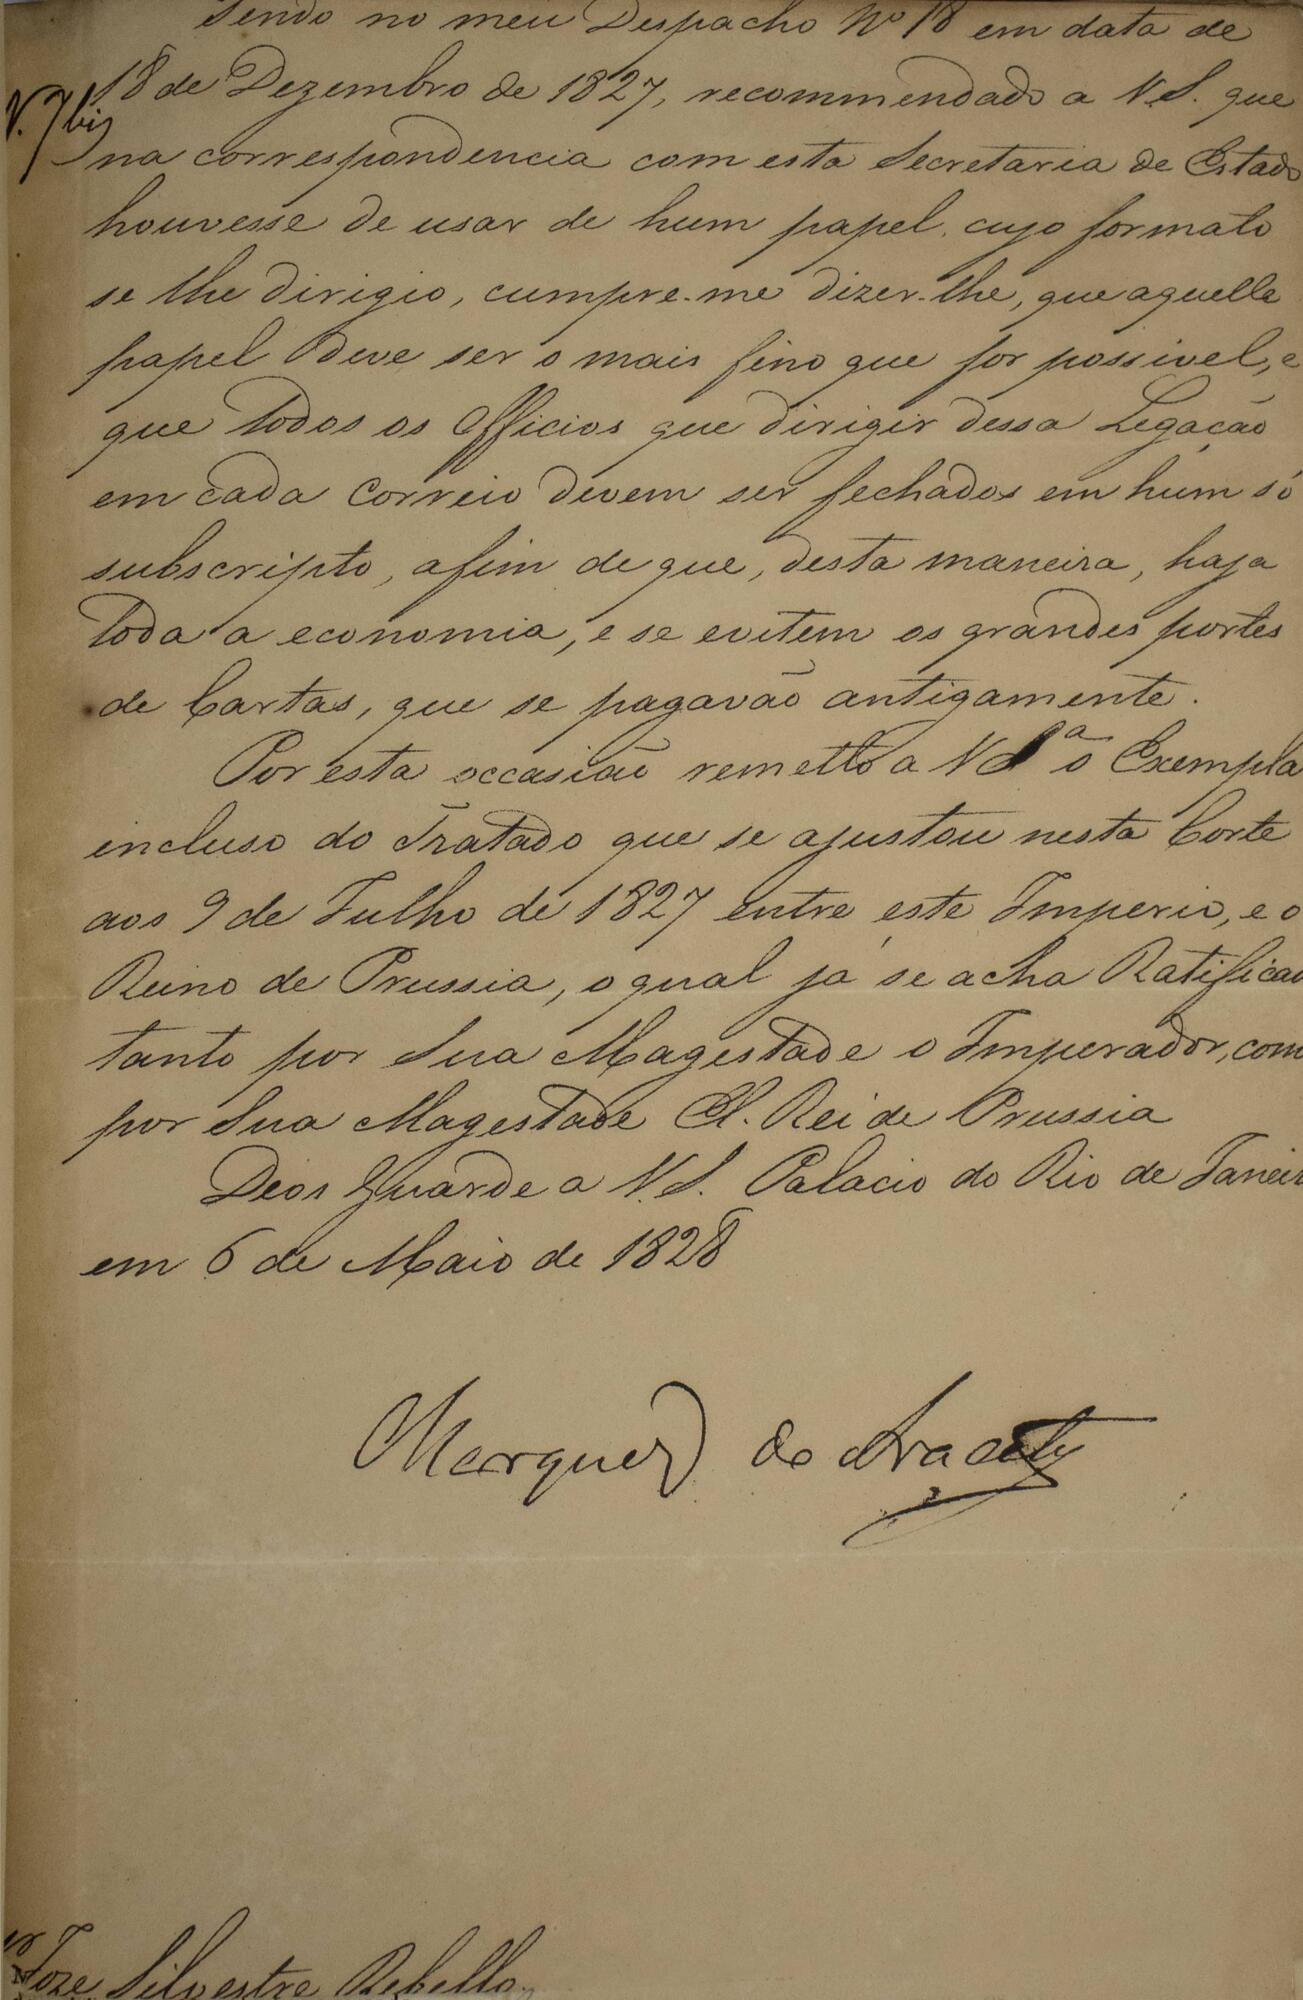 Tendo no meu Despacho Nº 18 em data de
18 de Dezembro de 1827, recommendado a V.S. que
N. 7 bis
na correspondencia com esta Secretaria de Estado
houvesse de usar de hum papel, cujo formato
se lhe dirigio, cumpre-me dizer-lhe, que aquelle
papel deve ser o mais fino que for possivel, e
que todos os Officios que dirigir dessa Legação
em cada Correio devem ser fechados em hum só
subscripto, afim de que, desta maneira, haja
toda a economia, e se evitem os grandes portes
de Cartas, que se pagavão antigamente.
Por esta occasião remetto a V Sª o Exempla
incluso do Tratado que se ajustou nesta Corte
aos 9 de Julho de 1827 entre este Imperio, e o
Reino de Prussia, o qual já se acha Ratificad
tanto por Sua Magestade o Imperador, com
por Sua Magestade El-Rei de Prussia
Deos Guarde a V.S. Palacio do Rio de Janeir
em 6 de Maio de 1828
Marquez de Aracaty
Joze Silvestre Rebello.